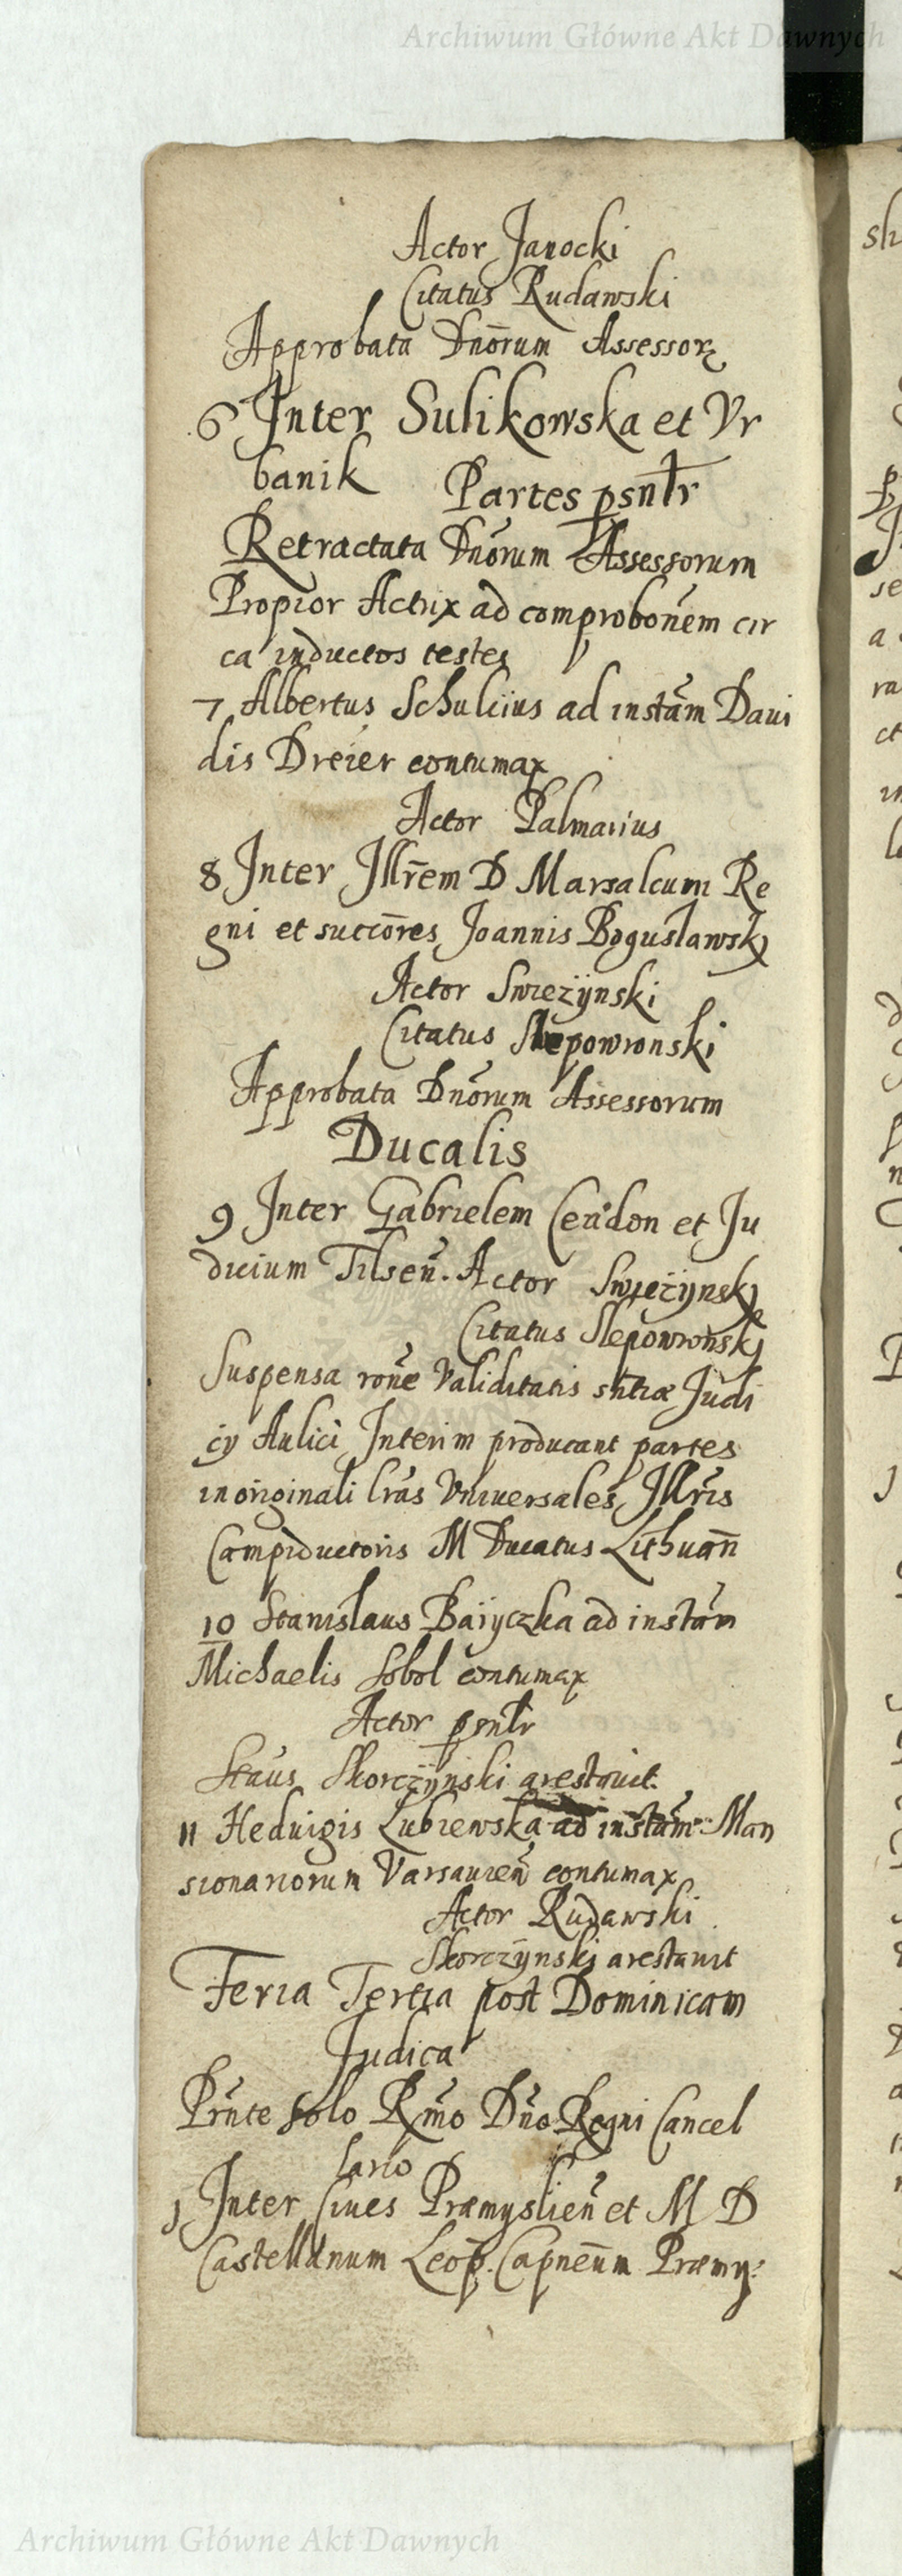 Archiwum Główne Akt Dawnych
Actor Janocki
Citatus Rudawski
Approbata Dnorum Assessorꝝ
6 Inter Sulikowska et Vr
banik Partes psntr
Retractata Dnorum Assessorum
Propior Actrix ad comprobonem cir
ca inductos testes
7 Albertus Schulcius ad instam Daui
dis Dreier contumax
Actor Palmarius
8 Inter Illrem D Marsalcum Re
gni et succores Joannis Boguslawskj
Actor Swiezÿnski
Citatus Slepowronski
Approbata Dnorum Assessorum
Ducalis
9 Inter Gabrielem Cendon et Ju
dicium Tilsen. Actor Swiezÿnskj
Citatus Slepowronskj
Suspensa rone Validitatis sntiæ Judi
cÿ Aulici Interim producant partes
in originali lras Vniuersales Illris
Campiductoris M Ducatus Lithuan
10 Stanislaus Baiyczka ad instam
Michaelis Sobol contumax
Actor psntr
Staus Skorczÿnski arestauit.
11 Heduigis Lubiewska ad instam Man
sionariorum Varsauien contumax
Actor Rudawski
Skorczÿnski arestauit
Feria Tertia post Dominicam
Judica
Prnte solo Rmo Dno Regni Cancel
lario
1 Inter Ciues Præmyslien et M D
Castellanum Leop. Capneum Præmy:
Archiwum Główne Akt Dawnych